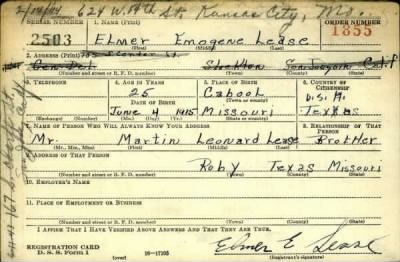 2/14/44 624 W. 14th St. Kansas City, Mo.
SERIAL NUMBER 1. NAME (Print) ORDER NUMBER
2503 Elmer Emogene Lease 1855
(First) (Middle) (Last)
2. ADDRESS (Print)
Gen. Del. Stockton San Joaquin Calif
(Number and street or R. F. D. number) (Town) (County) (State)
3. TELEPHONE 4. AGE IN YEARS 5. PLACE OF BIRTH 6. COUNTRY OF CITIZENSHIP
25 Cabool U.S.A.
DATE OF BIRTH (Town or county)
June 4 1915 Missouri Texas
(Exchange) (Number) (Mo.) (Day) (Yr.) (State or country)
7. NAME OF PERSON WHO WILL ALWAYS KNOW YOUR ADDRESS 8. RELATIONSHIP OF THAT PERSON
Mr. Martin Leonard Lease Brother
(Mr., Mrs., Miss) (First) (Middle) (Last)
9. ADDRESS OF THAT PERSON
Roby Texas Missouri
(Number and street or R. F. D. number) (Town) (County) (State)
10. EMPLOYER'S NAME
11. PLACE OF EMPLOYMENT OR BUSINESS
(Number and street or R. F. D. number) (Town) (County) (State)
I AFFIRM THAT I HAVE VERIFIED ABOVE ANSWERS AND THAT THEY ARE TRUE.
REGISTRATION CARD
D. S. S. Form 1 (over) 16—17105 Elmer E Lease
(Registrant's signature)